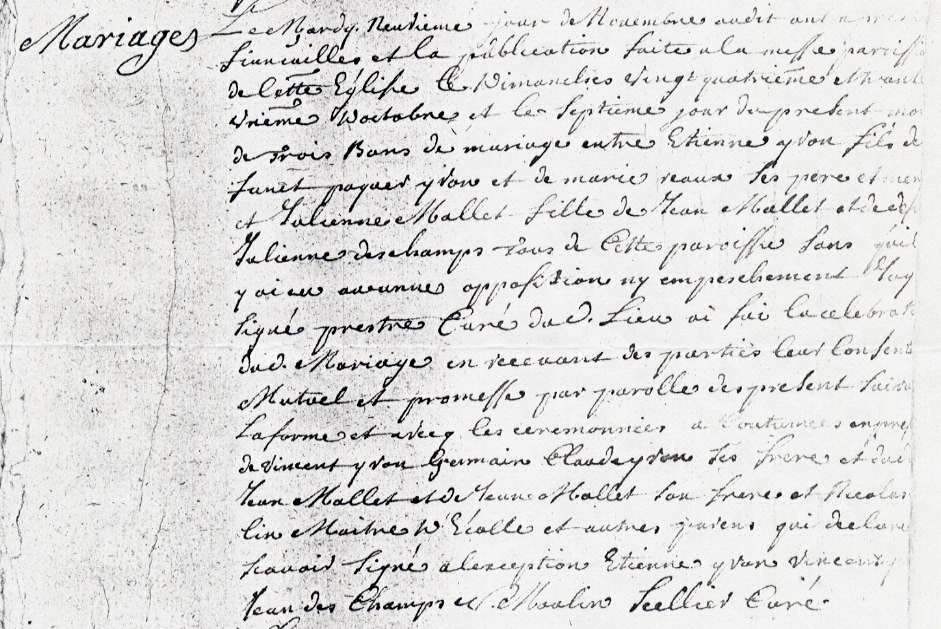 Mariages
Le Mardy Neufieme jour de Novembre audit ant
fiancailles et la publication faite a la messe paroissi
de Cette Eglise le Dimanches vingt quatrieme et trante
vrieme d'octobre et le septieme jour du present mo
de trois Bans de mariage entre Etienne yvon fils de
yvon et de marie reaux ses pere et mer
et Julienne Mallet fille de Jean Mallet et de
Julienne deschamps tous de Cette paroisse sans quil
y ai eu aucunnes opposition ny empeschement
signé prestre Curé dud. Lieu ai fai la celebrat
dud. Mariage en recevant des parties leur Consent
Mutuel et promesse par parolle des present
la forme et avecq les ceremonnies a Coutumees
de vincent yvon Germain Claude yvon ses frere et
Jean Mallet et de Jean Mallet son frere et Nicolas
lin Maitre d'Ecolle et autres parens qui declare
scavoir signé a lexception Etienne yvon vincent
Jean des Champs Moulin Scellier Curé